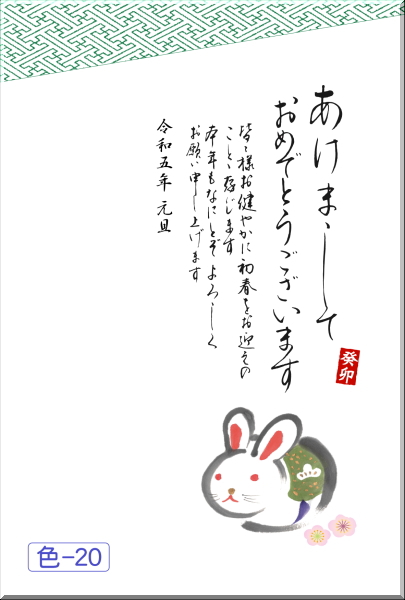 あけまして
おめでとうございます
皆々様お健やかに初春をお迎えの
ことゝ存じます
本年もなにとぞよろしく
お願い申し上げます
令和五年 元旦
癸卯
色-20